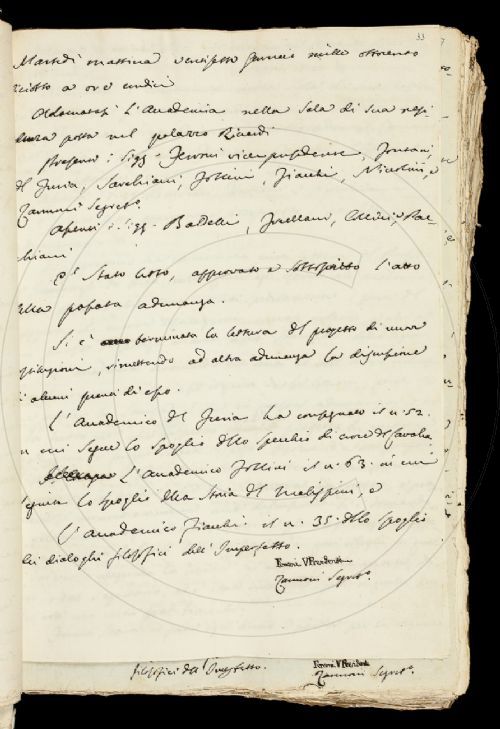 33
Martedì mattina ventisette Gennaio mille ottocento
ciotto a ore undici
Adunatasi l'Accademia nella Sala di sua resi
denza posta nel palazzo Ricardi
Presenti i Sigg.ri Ferroni vicepresidente, Fontani,
del Furia, Sarchiani, Follini, Fiacchi, Niccolini, e
Zannoni Segret.o
Assenti i Sigg.ri Baldelli, Collini, e
chiani
E' stato letto, approvato e sottoscritto l'atto
della passata adunanza.
Si è terminata la lettura del progetto di nuove
, rimettendo ad altra adunanza la discussione
d'alcuni punti di esso.
L'Accademico del Furia ha consegnato il n. 52.
in cui segue lo spoglio dello specchio di croce del Cavalca
L'Accademico Follini il n. 63. in cui
seguita lo spoglio della Storia del Malispini, e
L'Accademico Fiacchi il n. 35. dello spoglio
dei dialoghi filosofici dell'Imperfetto.
Ferroni V. Presidente
Zannoni Segret.o
filosofici dell'Imperfetto.
Ferroni V. Presidente
Zannoni Segret.o